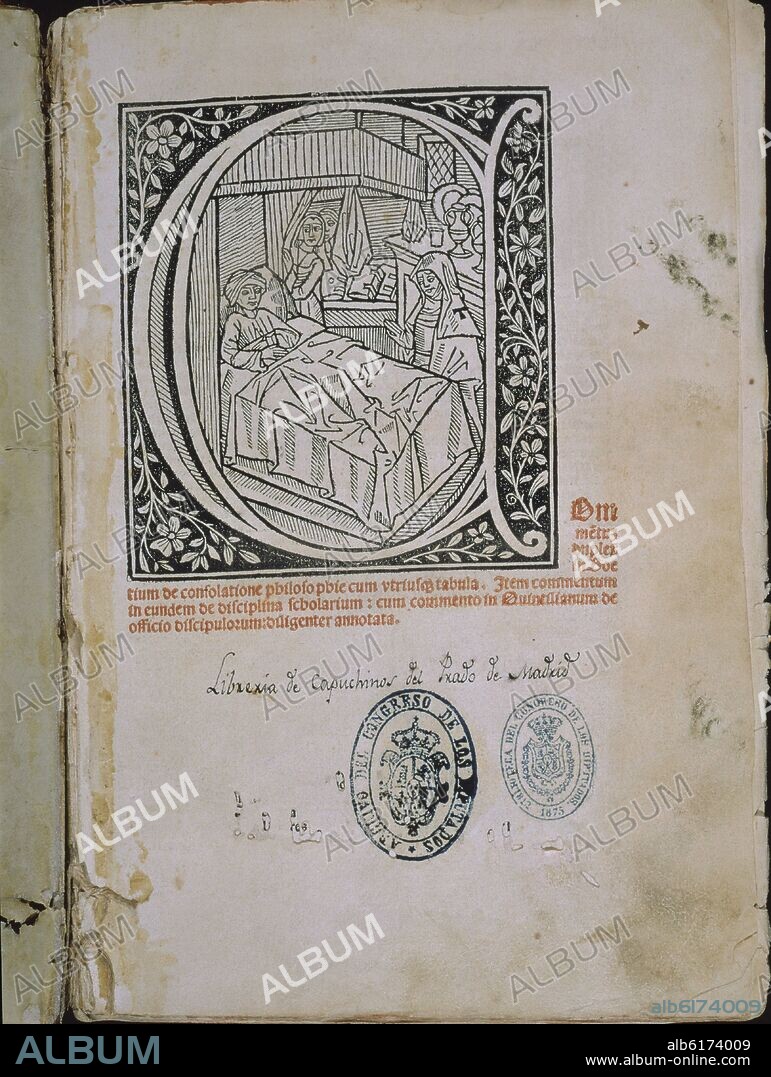 Om
mẽtu
duplex
Boe
tium de consolatione philosophie cum vtriusqꝫ tabula. Item commentum
in eundem de disciplina scholarium: cum commento in Quintilianum de
officio discipulorum: diligenter annotata.
Libreria de Capuchinos del Prado de Madrid
ARCHIVO DEL CONGRESO DE LOS DIPUTADOS
BIBLIOTECA DEL CONGRESO DE LOS DIPUTADOS
1875
ALBUM
alb6174009
ALBUM
alb6174009
www.album-online.com